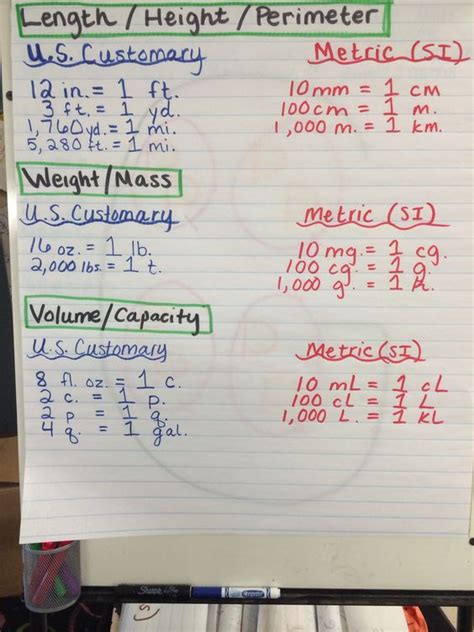 Length / Height / Perimeter
U.S. Customary
12 in. = 1 ft.
3 ft. = 1 yd.
1,760 yd. = 1 mi.
5,280 ft. = 1 mi.
Metric (SI)
10 mm = 1 cm
100 cm = 1 m.
1,000 m. = 1 km.
Weight/Mass
U.S. Customary
16 oz. = 1 lb.
2,000 lbs. = 1 t.
Metric (SI)
10 mg. = 1 cg.
100 cg. = 1 g.
1,000 g. = 1 k.
Volume/Capacity
U.S. Customary
8 fl. oz. = 1 c.
2 c. = 1 p.
2 p = 1 q.
4 q. = 1 gal.
Metric (SI)
10 mL = 1 cL
100 cL = 1 L
1,000 L. = 1 kL
Sharpie
EXPO